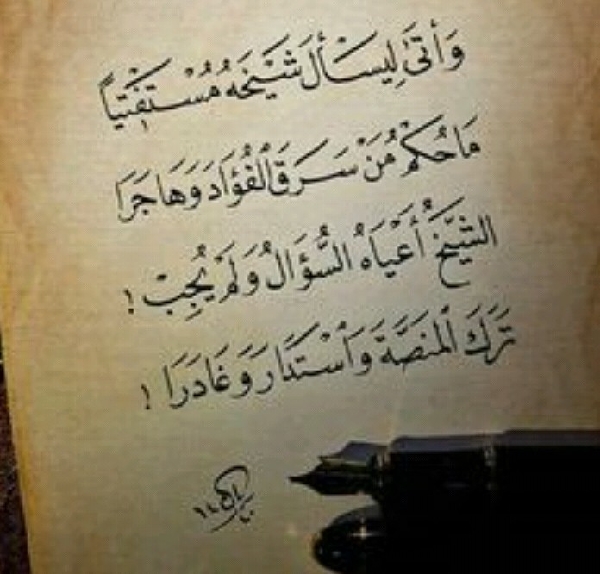 وَأَتَىٰ لِيَسْأَلَ شَيْخَهُ مُسْتَفْتِياً
مَا حُكْمُ مَنْ سَرَقَ الْفُؤَادَ وَهَاجَرَا
الشَّيْخُ أَعْيَاهُ السُّؤَالُ وَلَمْ يُجِبْ !
تَرَكَ الْمَنَصَّةَ وَاسْتَدَارَ وَغَادَرَا !